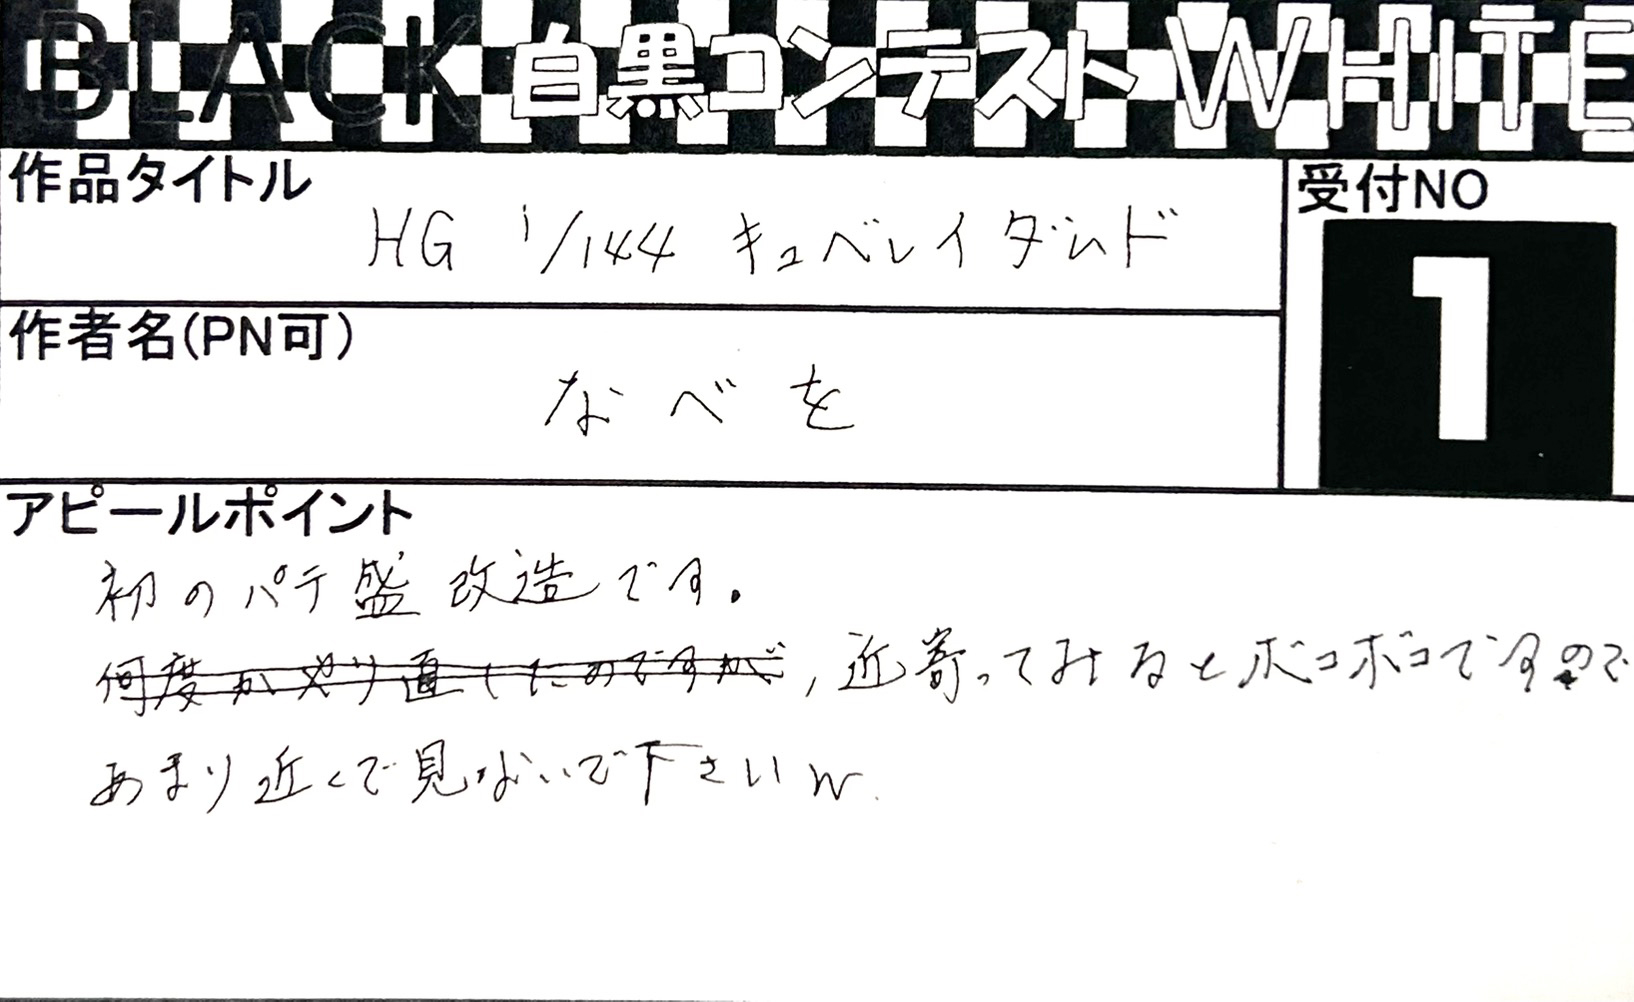 BLACK 白黒コンテスト WHITE
作品タイトル
HG 1/144 キュベレイダムド
受付NO
1
作者名(PN可)
なべを
アピールポイント
初のパテ盛改造です。
何度かやり直したのですが、近寄ってみるとボコボコですので
あまり近くで見ないで下さいw